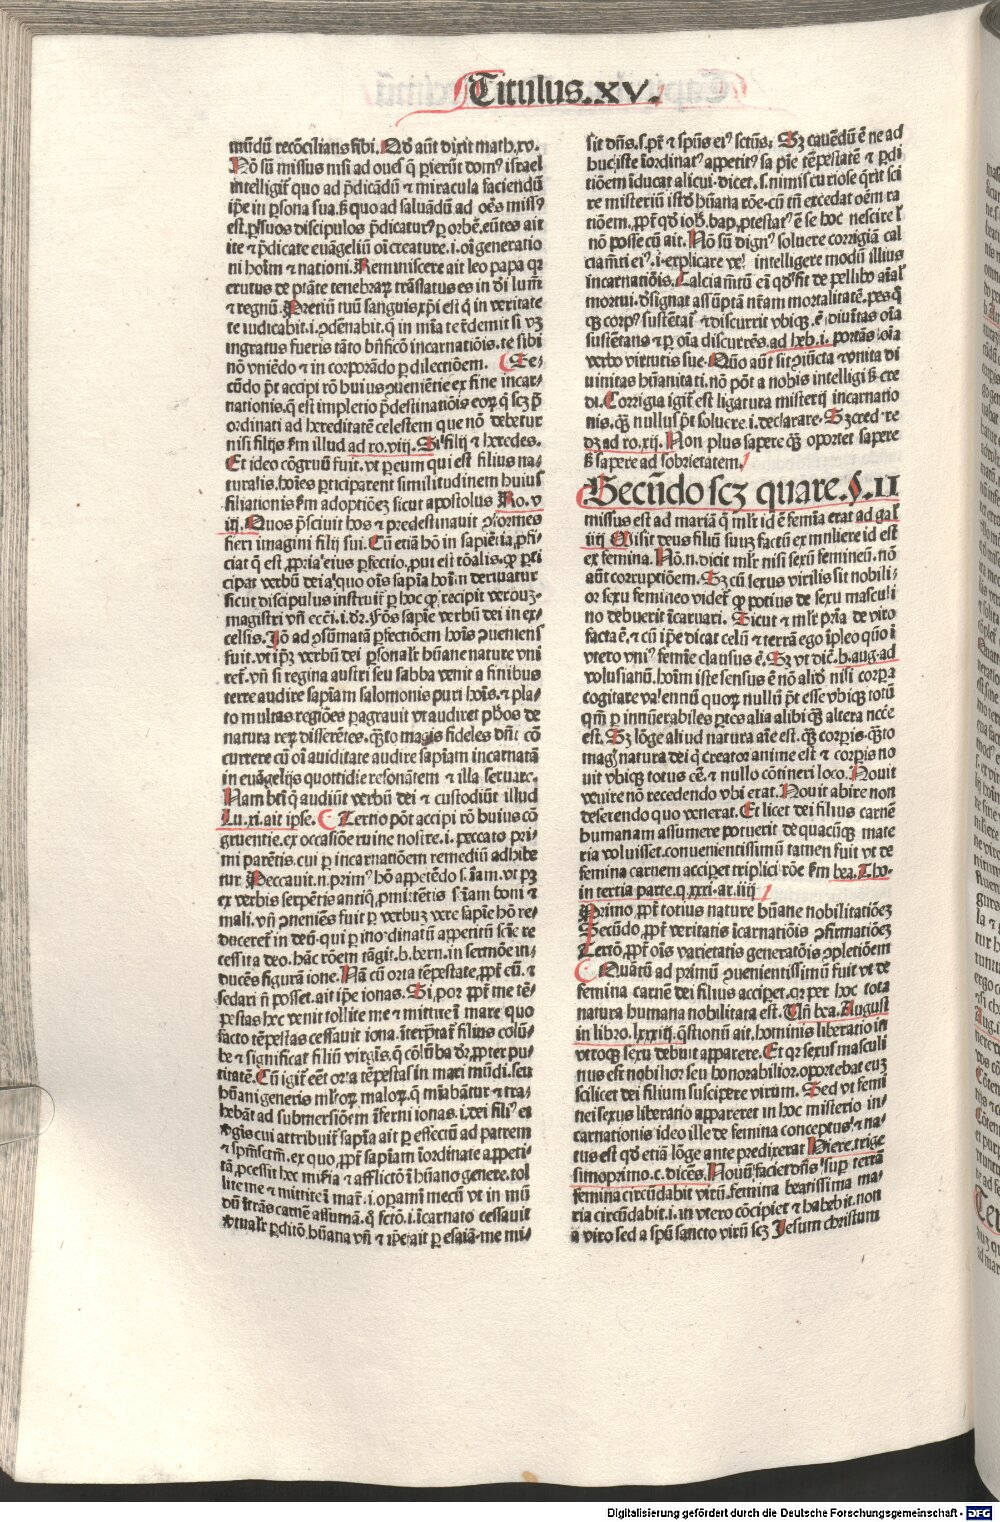 Titulus.XV.
mūdū recōcilians sibi. Qd̄ aūt dixit math.xv.
Nō sū missus nisi ad oues q̄ perierūt domꝰ israel
intelligit̄ quo ad p̄dicādū ⁊ miracula faciendū
ip̄e in ꝑsona sua. sꝫ quo ad saluādū ad oēs missꝰ
est. ꝑ suos discipulos p̄dicaturꝰ ꝑ orbē. eūtes ait
ite ⁊ p̄dicate euāgeliū oī creature. i. oī generatio
ni hoīm ⁊ nationi. Reminiscere ait leo papa qr
erutus de ptāte tenebraꝝ trāslatus es in dī lumē
⁊ regnū. Pretiū tuū sanguis xp̄i est q̄ in veritate
te iudicabit. i. ꝯdēnabit. q̄ in mīa te redemit si vꝫ
ingratus fueris tāto bn̄ficō incarnatiōis. te sibi
nō vniēdo ⁊ in corporādo ꝑ dilectiōem. Se-
cūdo pt̄ accipi rō huius ꝯueniētie ex fine incar-
nationis. q̄ est impletio p̄destinatiōis eoꝝ q̄ scꝫ p̄
ordinati ad hereditatē celestem que nō debetur
nisi filijs sm̄ illud ad ro. viij. Si filij ⁊ heredes.
Et ideo cōgruū fuit. vt ꝑ eum qui est filius na-
turalis. hoīes ꝑticiparent similitudinem huius
filiationis sm̄ adoptiōeꝫ sicut apostolus Ro. v
iij. Quos p̄sciuit hos ⁊ predestinauit ꝯformes
fieri imagini filij sui. Cū etiā hō in sapiētia ꝓfi-
ciat q̄ est ꝓpria eius ꝑfectio, put est rōalis. ꝙ ꝑti
cipat verbū dei a quo oīs sapīa hoīm deriuatur
sicut discipulus instruit̄ ꝑ hoc ꝙ recipit verbuꝫ
magistri vn̄ eccī. i. dr̄. fōs sapīe verbū dei in ex-
celsis. Iō ad ꝯsūmatā ꝑfectiōem hoīs ꝯueniens
fuit. vt ip̄ꝫ verbū dei ꝑsonalr̄ hūane nature vni
ret̄. vn̄ si regina austri seu sabba venit a finibus
terre audire sapīam salomonis puri hoīs. ⁊ pla-
to multas regiōes ꝑagrauit vt audiret pħos de
natura reꝝ disserētes. quāto magis fideles dn̄t cō
currere cū oī auiditate audire sapīam incarnatā
in euāgelijs quottidie resonātem ⁊ illa seruare.
Nam bt̄i q̄ audiūt verbū dei ⁊ custodiūt illud
Lu. xi. ait ipse. Tertio pōt accipi rō huius cō
gruentie. ex occasiōe ruine nostre. i. peccato pri-
mi parētis. cui ꝑ incarnatiōem remediū adhibe
tur Peccauit. n. primꝰ hō appetēdo s. iam. vt pꝫ
ex verbis serpētis antiq̄, pmittētis s iam boni ⁊
mali. vn̄ ꝯueniēs fuit ꝑ verbuꝫ vere sapīe hō re-
duceret̄ in deū. qui ꝑ inordinatū appetitū sciē re
cessit a deo. hāc rōem tāgit. b. bern. in sermōe in-
ducēs figurā ione. Nā cū orta tēpestate, ꝓpt̄ eū. ⁊
sedari n̄ posset. ait ip̄e ionas. Si, por ꝓpt̄ me tē-
pestas hec venit tollite me ⁊ mittite ī mare quo
facto tēpestas cessauit iona. īterp̄tat̄ filius colū-
be ⁊ significat filiū virgīs. q̄ colūba dr̄, ꝓpter pu-
ritatē. Cū igit̄ eēt orta tēpestas in mari mūdi. seu
hūani generis mlr̄oꝝ maloꝝ. q̄ mīabāntur ⁊ tra-
hebāt ad submersiōem īferni ionas. i. dei filiꝰ ex
vgīs cui attribuit̄ sapīa ait ꝑ effectū ad patrem
⁊ spm̄sctm̄. ex quo, ꝓpt̄ sapīam īordinate appeti-
tā, ꝓcessit hec miseria ⁊ afflictō ī hūano genere. tol
lite me ⁊ mittite ī mar̄. i. opamī mecū vt in mū
dū ītrās carnē assumā. q̄ fctō. i. īcarnato cessauit
vtualr̄ ꝑditō hūana vn̄ ⁊ ip̄e ait ꝑ esaiā. me mi-
sit dn̄s. s. pr̄ ⁊ spūs eiꝰ sctūs. Sꝫ cauēdū ē ne ad
huc iste īordinatꝰ appetitꝰ sapīe tēpestatē ⁊ ꝑdi
tiōem īducat alicui. dicet. s. nimis curiose q̄rit sci
re misteriū istd̄ hūana rōe. cū tn̄ excedat oēm ra
tiōem, ꝓpt̄ qd̄ ioħ. bap. ptestatꝰ ē se hoc nescire l̄
nō posse cū ait. Nō sū dignꝰ soluere corrigiā cal
ciamēti eiꝰ. i. explicare vel intelligere modū illius
incarnatiōis. Calciamētū eī qd̄ fit de pellibꝰ aīal
mortui. dsignat assūptā nr̄am mortalitatē. pes q̄
qꝫ corpꝰ sustētat̄ ⁊ discurrit vbiqꝫ. ē diuītas oīa
sustētans ⁊ ꝑ oīa discurrēs. ad heb. i. portās oīa
verbo virtutis sue. Quō aūt sit ꝯiūcta ⁊ vnita di
uinitas hūanitati. nō pōt a nobis intelligi sꝫ cre
di. Corrigia igit̄ est ligatura misterij incarnatio
nis. qꝫ nullus pt̄ soluere i. declarare. Sꝫ cred re
dꝫ ad ro. xij. Non plus sapere qꝫ oportet sapere
sꝫ sapere ad sobrietatem.
Secūdo scꝫ quare. §. II
missus est ad mariā q̄ mlr̄ id ē femīa erat ad gal̄
iiij Misit deus filiū suuꝫ factū ex muliere id est
ex femina. Nō. n. dicit mlr̄ nisi sexū femineū. nō
aūt corruptiōem. Sꝫ cū sexus virilis sit nobili-
or sexu femineo videt̄ ꝙ potius de sexu masculi
no debuerit īcarnari. Sicut ⁊ mlr̄ p̄ria de viro
facta ē. ⁊ cū ip̄e dicat celū ⁊ terrā ego īpleo quō ī
vtero vniꝰ femīe clausus ē. Sꝫ vt dic̄. b. aug. ad
volusianū. hoīm iste sensus ē nō aliō nisi corpa
cogitare valennū quoꝝ nullū pt̄ esse vbiqꝫ totū
qm̄ ꝑ innūerabiles ꝑtes alia alibi qꝫ altera ncc̄e
est. Sꝫ lōge aliud natura aīe est. qꝫ corpis. qꝫto
magꝰ natura dei q̄ creator anime est ⁊ corpis no
uit vbiqꝫ totus eē. ⁊ nullo cōtineri loco. Nouit
venire nō recedendo vbi erat. Nouit abire non
deserendo quo venerat. Et licet dei filius carnē
humanam assumere potuerit de quacūqꝫ mate
ria voluisset. conuenientissimū tamen fuit vt de
femina carnem acciperet triplici rōe sm̄ bea. Tho.
in tertia parte. q. xxxi. ar. iiij
Primo, ꝓpt̄ totius nature hūane nobilitatiōeꝫ
Secūdo, ꝓpt̄ veritatis īcarnatiōis ꝯfirmatiōeꝫ
Tertō, ꝓpt̄ oīs varietatis generatōis ꝯpletiōem
Quātū ad primū ꝯuenientissimū fuit vt de
femina carnē dei filius acciperet. qr per hoc tota
natura humana nobilitata est. Vn̄ bea. August
in libro. lxxxiij. q̄stionū ait. hominis liberatio in
vtroqꝫ sexu debuit apparere. Et qr sexus masculi
nus est nobilior seu honorabilior. oportebat euꝫ
scilicet dei filium suscipere virum. Sed vt femi
nei sexus liberatio appareret in hoc misterio in-
carnationis ideo ille de femina conceptus ⁊ na-
tus est qd̄ etiā lōge ante predixerat Hiere. trige
simoprimo. c. dicēs. Nouū faciet dn̄s sup terrā
femina circūdabit virū. femina beatissima ma-
ria circūdabit. i. in vtero cōcipiet ⁊ habebit. non
a viro sed a spū sancto virū scꝫ Iesum christum
Digitalisierung gefördert durch die Deutsche Forschungsgemeinschaft - DFG